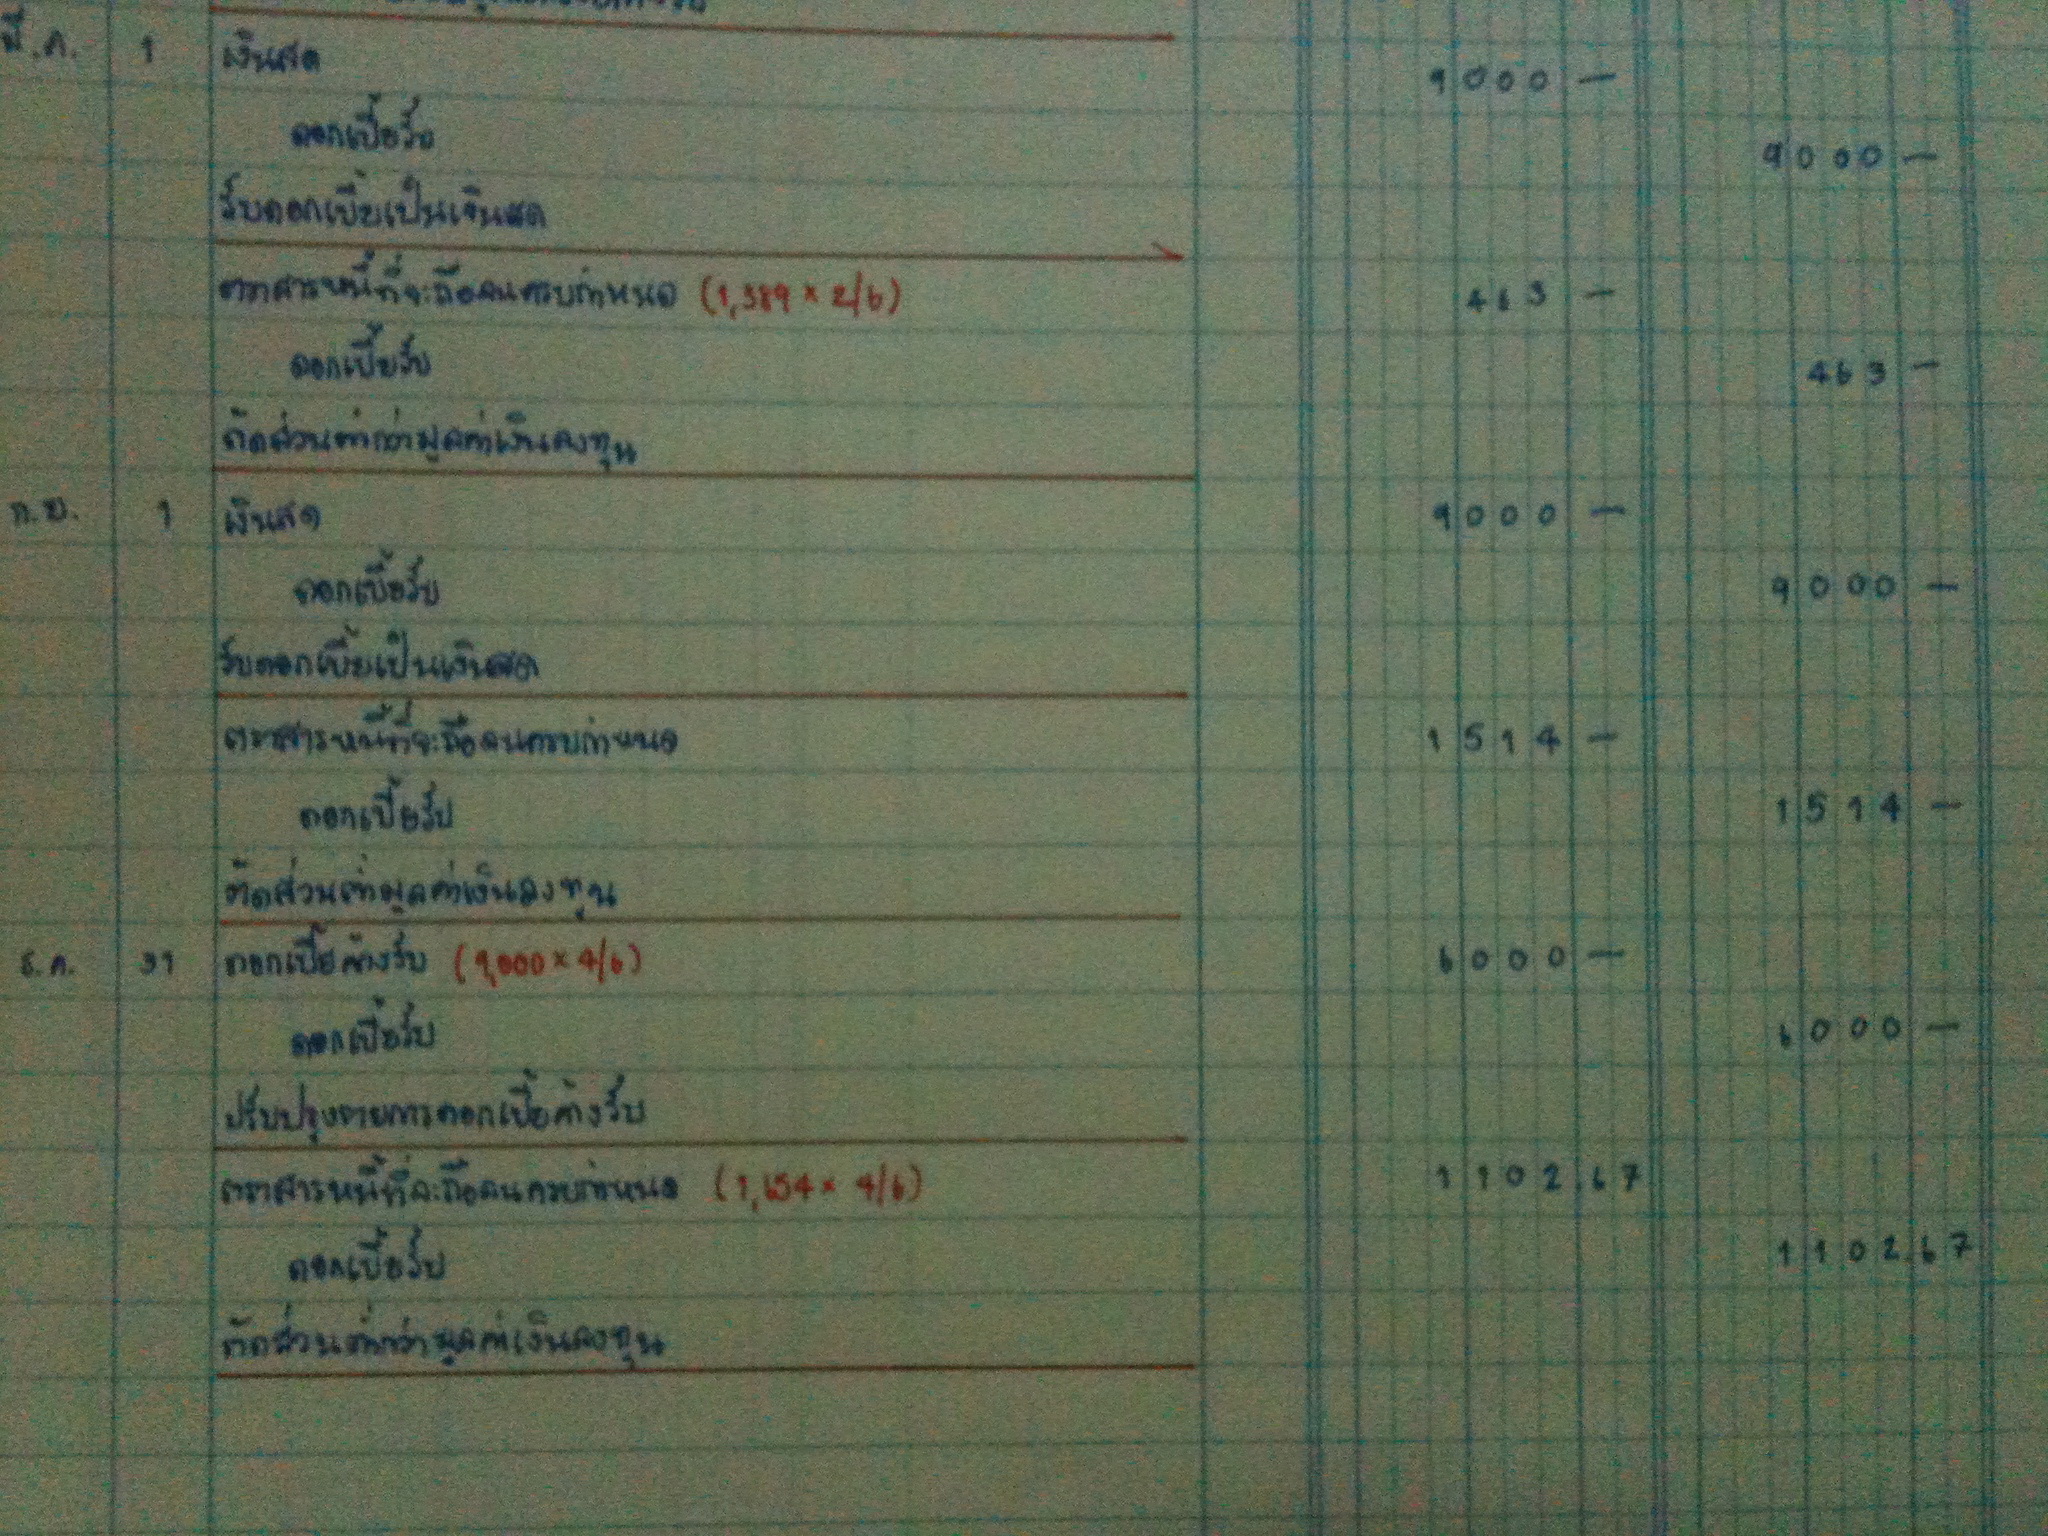 มี.ค. 1 เงินสด 9000 —
ดอกเบี้ยรับ 9000 —
รับดอกเบี้ยเป็นเงินสด
ตราสารหนี้ที่จะถือจนครบกำหนด (1,389 × 2/6) 463 —
ดอกเบี้ยรับ 463 —
ตัดส่วนต่ำกว่ามูลค่าเงินลงทุน
ก.ย. 1 เงินสด 9000 —
ดอกเบี้ยรับ 9000 —
รับดอกเบี้ยเป็นเงินสด
ตราสารหนี้ที่จะถือจนครบกำหนด 1514 —
ดอกเบี้ยรับ 1514 —
ตัดส่วนต่ำมูลค่าเงินลงทุน
ธ.ค. 31 ดอกเบี้ยค้างรับ (9,000 × 4/6) 6000 —
ดอกเบี้ยรับ 6000 —
ปรับปรุงรายการดอกเบี้ยค้างรับ
ตราสารหนี้ที่จะถือจนครบกำหนด (1,654 × 4/6) 1102.67
ดอกเบี้ยรับ 1102.67
ตัดส่วนต่ำกว่ามูลค่าเงินลงทุน